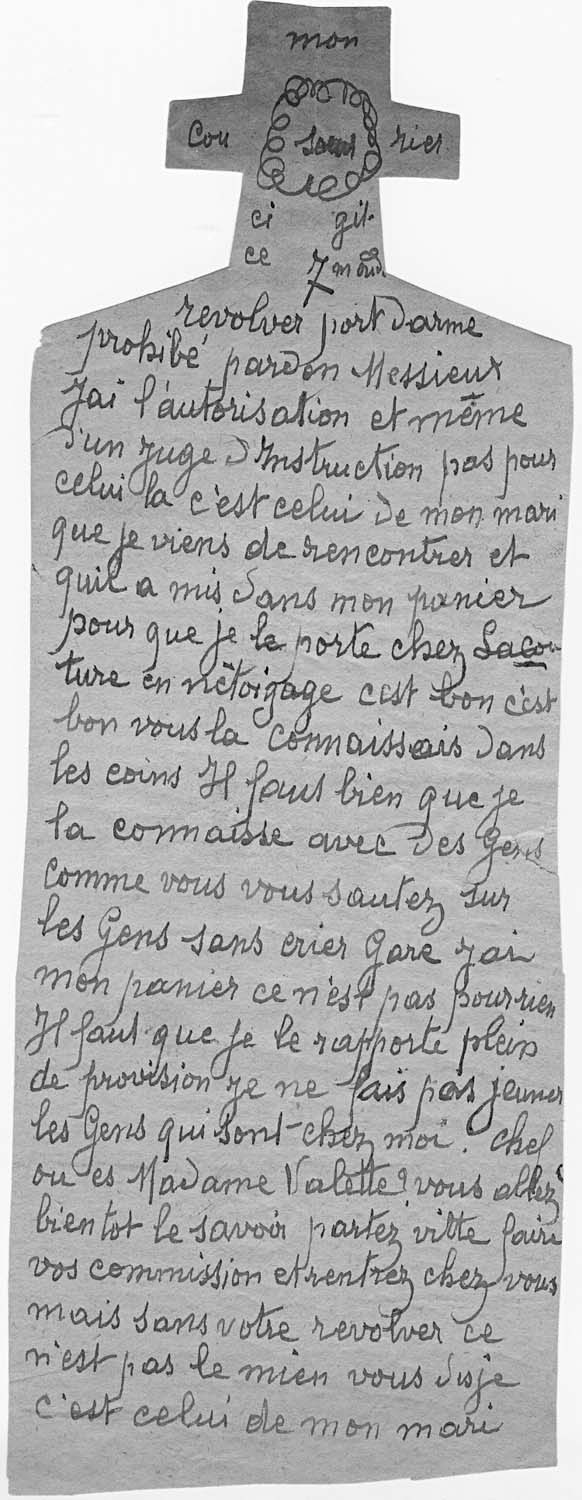 mon
Cou sous rier
ci git
ce 7
revolver port darme
prohibé pardon Messieux
Jai l'autorisation et même
d'un Juge d'Instruction pas pour
celui la c'est celui de mon mari
que je viens de rencontrer et
quil a mis dans mon panier
pour que je le porte chez Lacou
ture en nétoigage cest bon c'est
bon vous la connaissais dans
les coins Il faut bien que je
la connaisse avec des Gens
comme vous vous sautez sur
les Gens sans crier Gare Jai
mon panier ce n'est pas pour rien
Il faut que je le rapporte plein
de provision je ne fais pas jeuner
les Gens qui sont chez moi. Chef
ou es Madame Valette? vous allez
bientot le savoir partez vitte faire
vos commission et rentrez chez vous
mais sans votre revolver ce
n'est pas le mien vous disje
c'est celui de mon mari